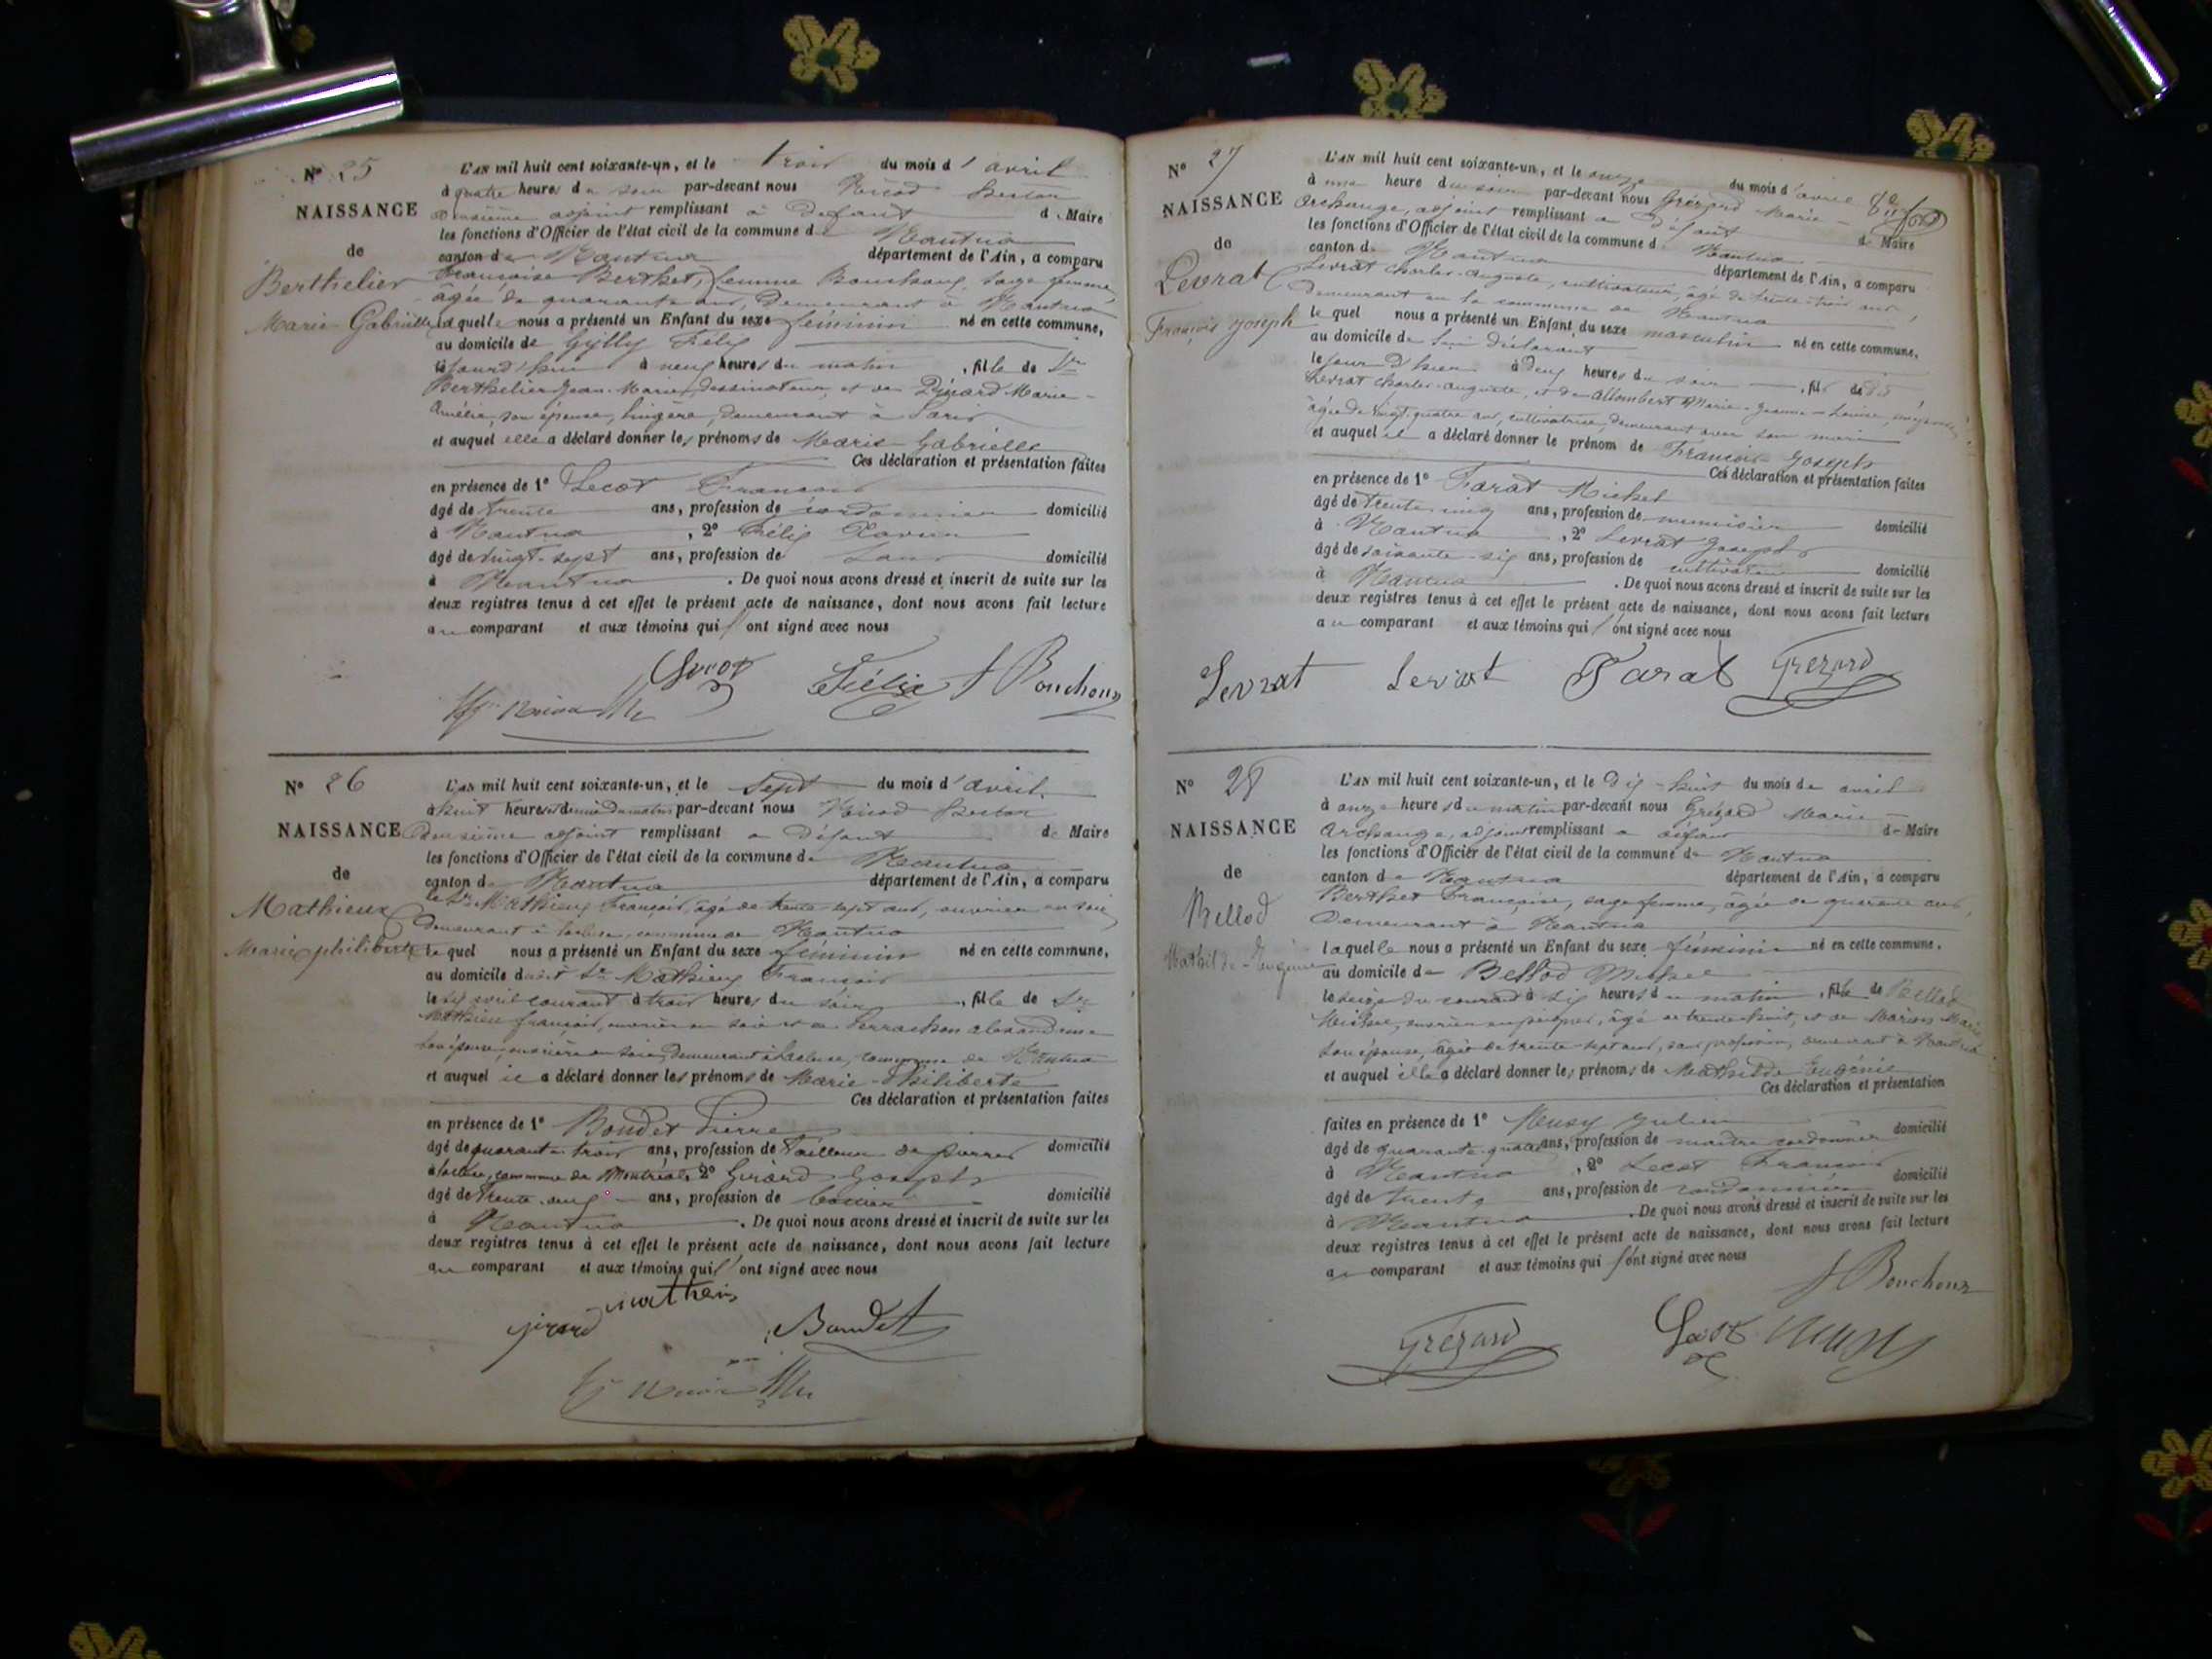 N° 25
NAISSANCE
de
Berthelier
Marie Gabrielle
L'AN mil huit cent soixante-un, et le trois du mois d'avril
à quatre heures du soir par-devant nous
deuxième adjoint remplissant à défaut d Maire
les fonctions d'Officier de l'état civil de la commune de Nantua
canton de Nantua département de l'Ain, a comparu
Françoise Berthet, femme Bouchoux, sage femme,
âgée de quarante ans, demeurant à Nantua
laquelle nous a présenté un Enfant du sexe féminin né en cette commune,
au domicile de Gylly Félix
à neuf heures du matin, fille de Sr
Berthelier Jean-Marie, dessinateur, et de Marie-
Amélie, son épouse, lingère, demeurant à Paris
et auquel elle a déclaré donner les prénoms de Marie-Gabrielle
Ces déclaration et présentation faites
en présence de 1° Lecot François
âgé de trente ans, profession de cordonnier domicilié
à Nantua, 2° Félix
âgé de vingt-sept ans, profession de domicilié
à Nantua. De quoi nous avons dressé et inscrit de suite sur les
deux registres tenus à cet effet le présent acte de naissance, dont nous avons fait lecture
au comparant et aux témoins qui ont signé avec nous
Lecot Félix f Bouchoux
N° 26
NAISSANCE
de
Mathieux
Marie philiberte
L'AN mil huit cent soixante-un, et le sept du mois d'avril
à huit heures et demie du matin par-devant nous
deuxième adjoint remplissant à défaut de Maire
les fonctions d'Officier de l'état civil de la commune de Nantua
canton de Nantua département de l'Ain, a comparu
le Sr Mathieux François, âgé de trente-sept ans, ouvrier en soie
demeurant à commune de Nantua
lequel nous a présenté un Enfant du sexe féminin né en cette commune,
au domicile dudit Sr Mathieux François
le six avril courant à trois heures du soir, fille de Sr
Mathieu françois, ouvrier en soie et de
son épouse, ouvrière en soie, demeurant à commune de Nantua
et auquel il a déclaré donner les prénoms de Marie-Philiberte
Ces déclaration et présentation faites
en présence de 1° Boudet Pierre
âgé de quarante trois ans, profession de tailleur de pierres domicilié
commune de Montréal, 2° Girard Joseph
âgé de trente ans, profession de domicilié
à Nantua. De quoi nous avons dressé et inscrit de suite sur les
deux registres tenus à cet effet le présent acte de naissance, dont nous avons fait lecture
au comparant et aux témoins qui ont signé avec nous
girard Boudet
N° 27
NAISSANCE
de
Levrat
François Joseph
L'AN mil huit cent soixante-un, et le onze du mois d'avril
à une heure du soir par-devant nous Grézard Marie-
Archange, adjoint remplissant à défaut de Maire
les fonctions d'Officier de l'état civil de la commune de Nantua
canton de Nantua département de l'Ain, a comparu
Levrat Charles-auguste, cultivateur, âgé de trente-trois ans,
demeurant en la commune de Nantua
lequel nous a présenté un Enfant du sexe masculin né en cette commune,
au domicile de lui déclarant
le jour d'hier à deux heures du soir, fils dudit
Levrat Charles-auguste, et de allombert Marie-Jeanne-Louise,
âgée de vingt-quatre ans, cultivatrice, demeurant avec son mari
et auquel il a déclaré donner le prénom de François-Joseph
Ces déclaration et présentation faites
en présence de 1° Farat Michel
âgé de trente cinq ans, profession de menuisier domicilié
à Nantua, 2° Levrat Joseph
âgé de soixante-six ans, profession de cultivateur domicilié
à Nantua. De quoi nous avons dressé et inscrit de suite sur les
deux registres tenus à cet effet le présent acte de naissance, dont nous avons fait lecture
au comparant et aux témoins qui ont signé avec nous
Levrat Levrat Farat Grézard
N° 28
NAISSANCE
de
Bellod
Mathilde-Eugénie
L'AN mil huit cent soixante-un, et le dix-huit du mois de avril
à onze heures du matin par-devant nous Grézard Marie-
Archange, adjoint remplissant à défaut de Maire
les fonctions d'Officier de l'état civil de la commune de Nantua
canton de Nantua département de l'Ain, a comparu
Berthet Françoise, sage femme, âgée de quarante ans,
demeurant à Nantua
laquelle nous a présenté un Enfant du sexe féminin né en cette commune,
au domicile de Bellod Michel
le seize du courant à six heures du matin, fille de Bellod
Michel, ouvrier en peignes, âgé de trente huit, et de Marie
son épouse, âgée de trente-sept ans, sans profession, demeurant à Nantua
et auquel elle a déclaré donner les prénoms de Mathilde Eugénie
Ces déclaration et présentation
faites en présence de 1° Musy Julien domicilié
âgé de quarante-quatre ans, profession de maître cordonnier
à Nantua, 2° Lecot François domicilié
âgé de trente ans, profession de cordonnier
à Nantua. De quoi nous avons dressé et inscrit de suite sur les
deux registres tenus à cet effet le présent acte de naissance, dont nous avons fait lecture
au comparant et aux témoins qui ont signé avec nous
f Bouchoux
Grézard Lecot Musy